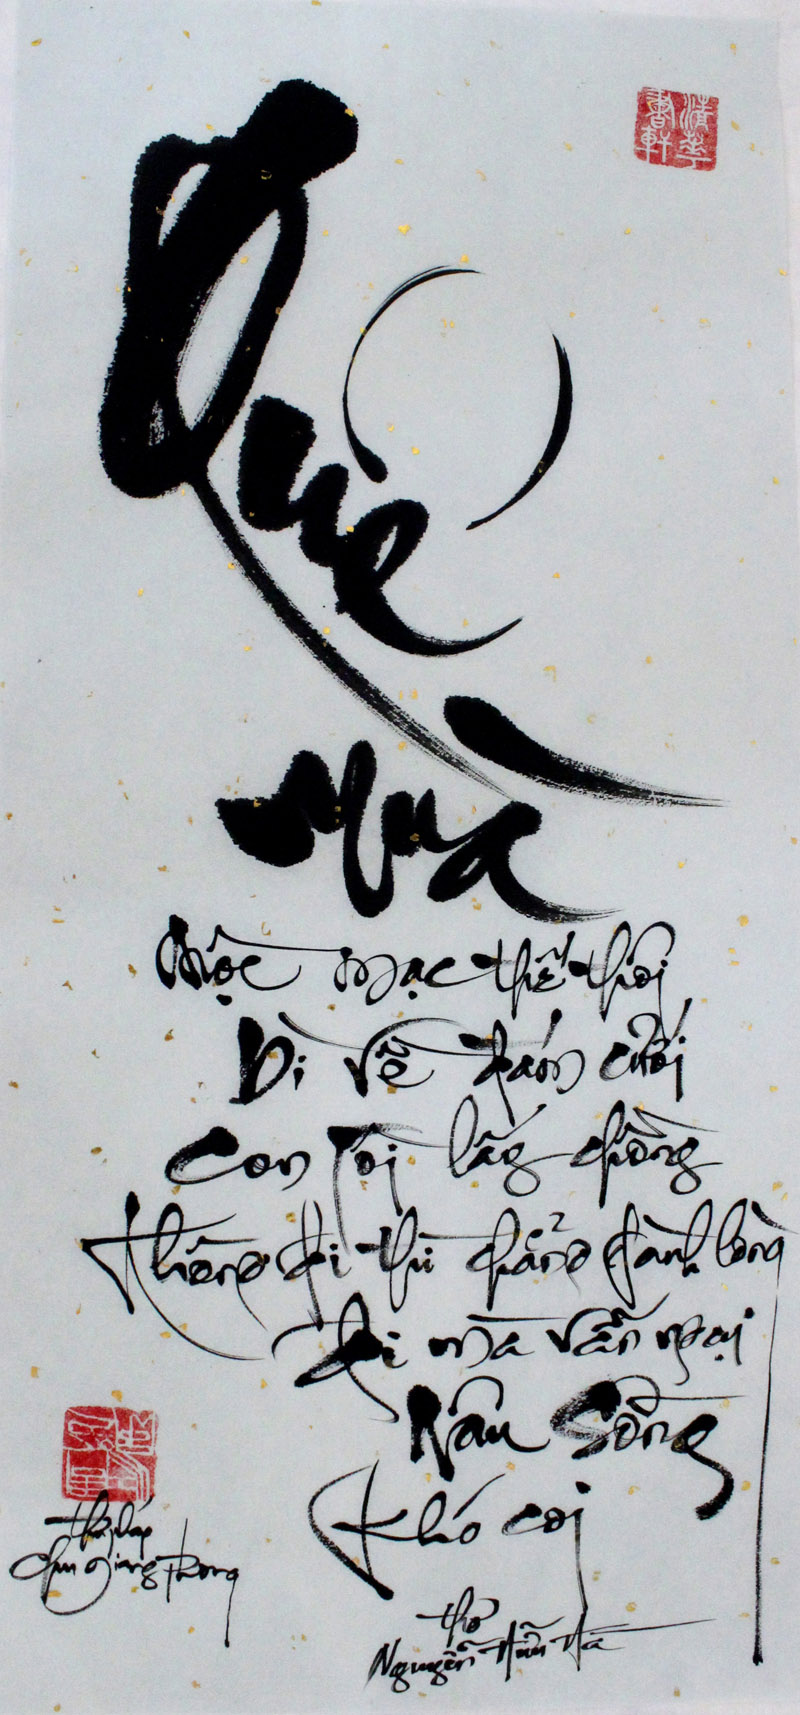 清華
書軒
Quê
Mùa
Mộc mạc thế thôi
Dì về đám cưới
Con tôi lấy chồng
Không đi thì chẳng đành lòng
Đi mà vẫn ngại
Nâu Sồng
Khó coi
thơ
Nguyễn Hữu Hà
thư pháp
Chu Giang Phong